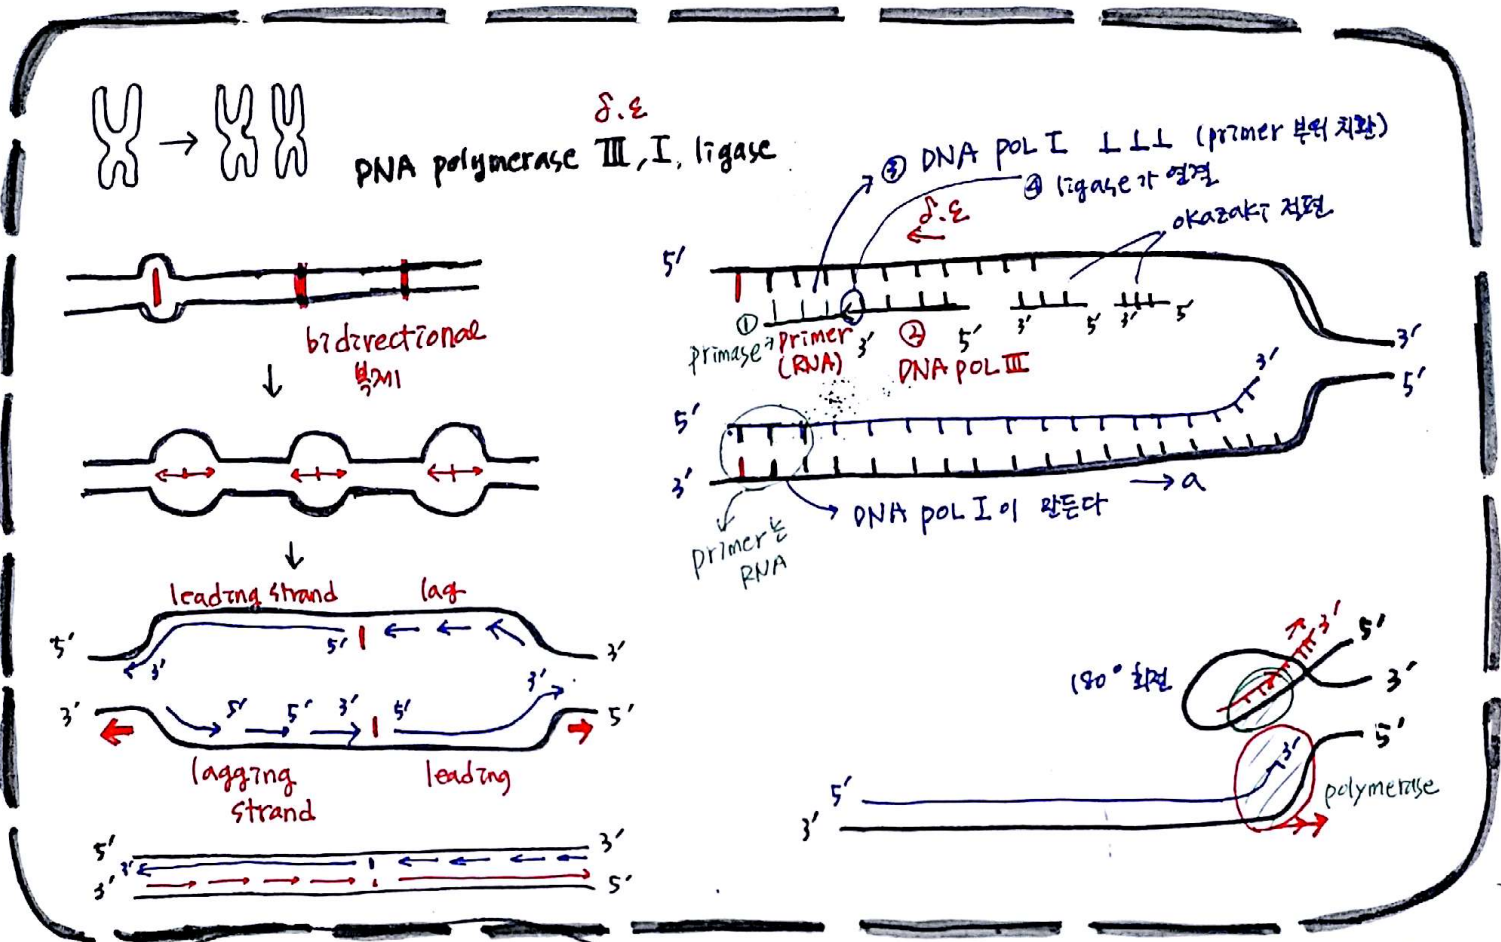 δ.ε
DNA polymerase III, I, ligase
bidirectional
복제
leading strand
lag
5'
5'
3'
3'
3'
3'
5'
5'
3'
5'
5'
lagging
strand
leading
5'
3'
3'
3'
5'
③ DNA POL I ⊥⊥⊥ (primer 부위 치환)
④ ligase가 연결
δ.ε
okazaki 절편
5'
①
primase
primer
(RNA)
3'
②
DNA POL III
5'
3'
5'
3'
5'
3'
5'
3'
5'
3'
→ a
DNA POL I이 만든다
primer는
RNA
180° 회전
3'
5'
3'
5'
3'
5'
3'
polymerase